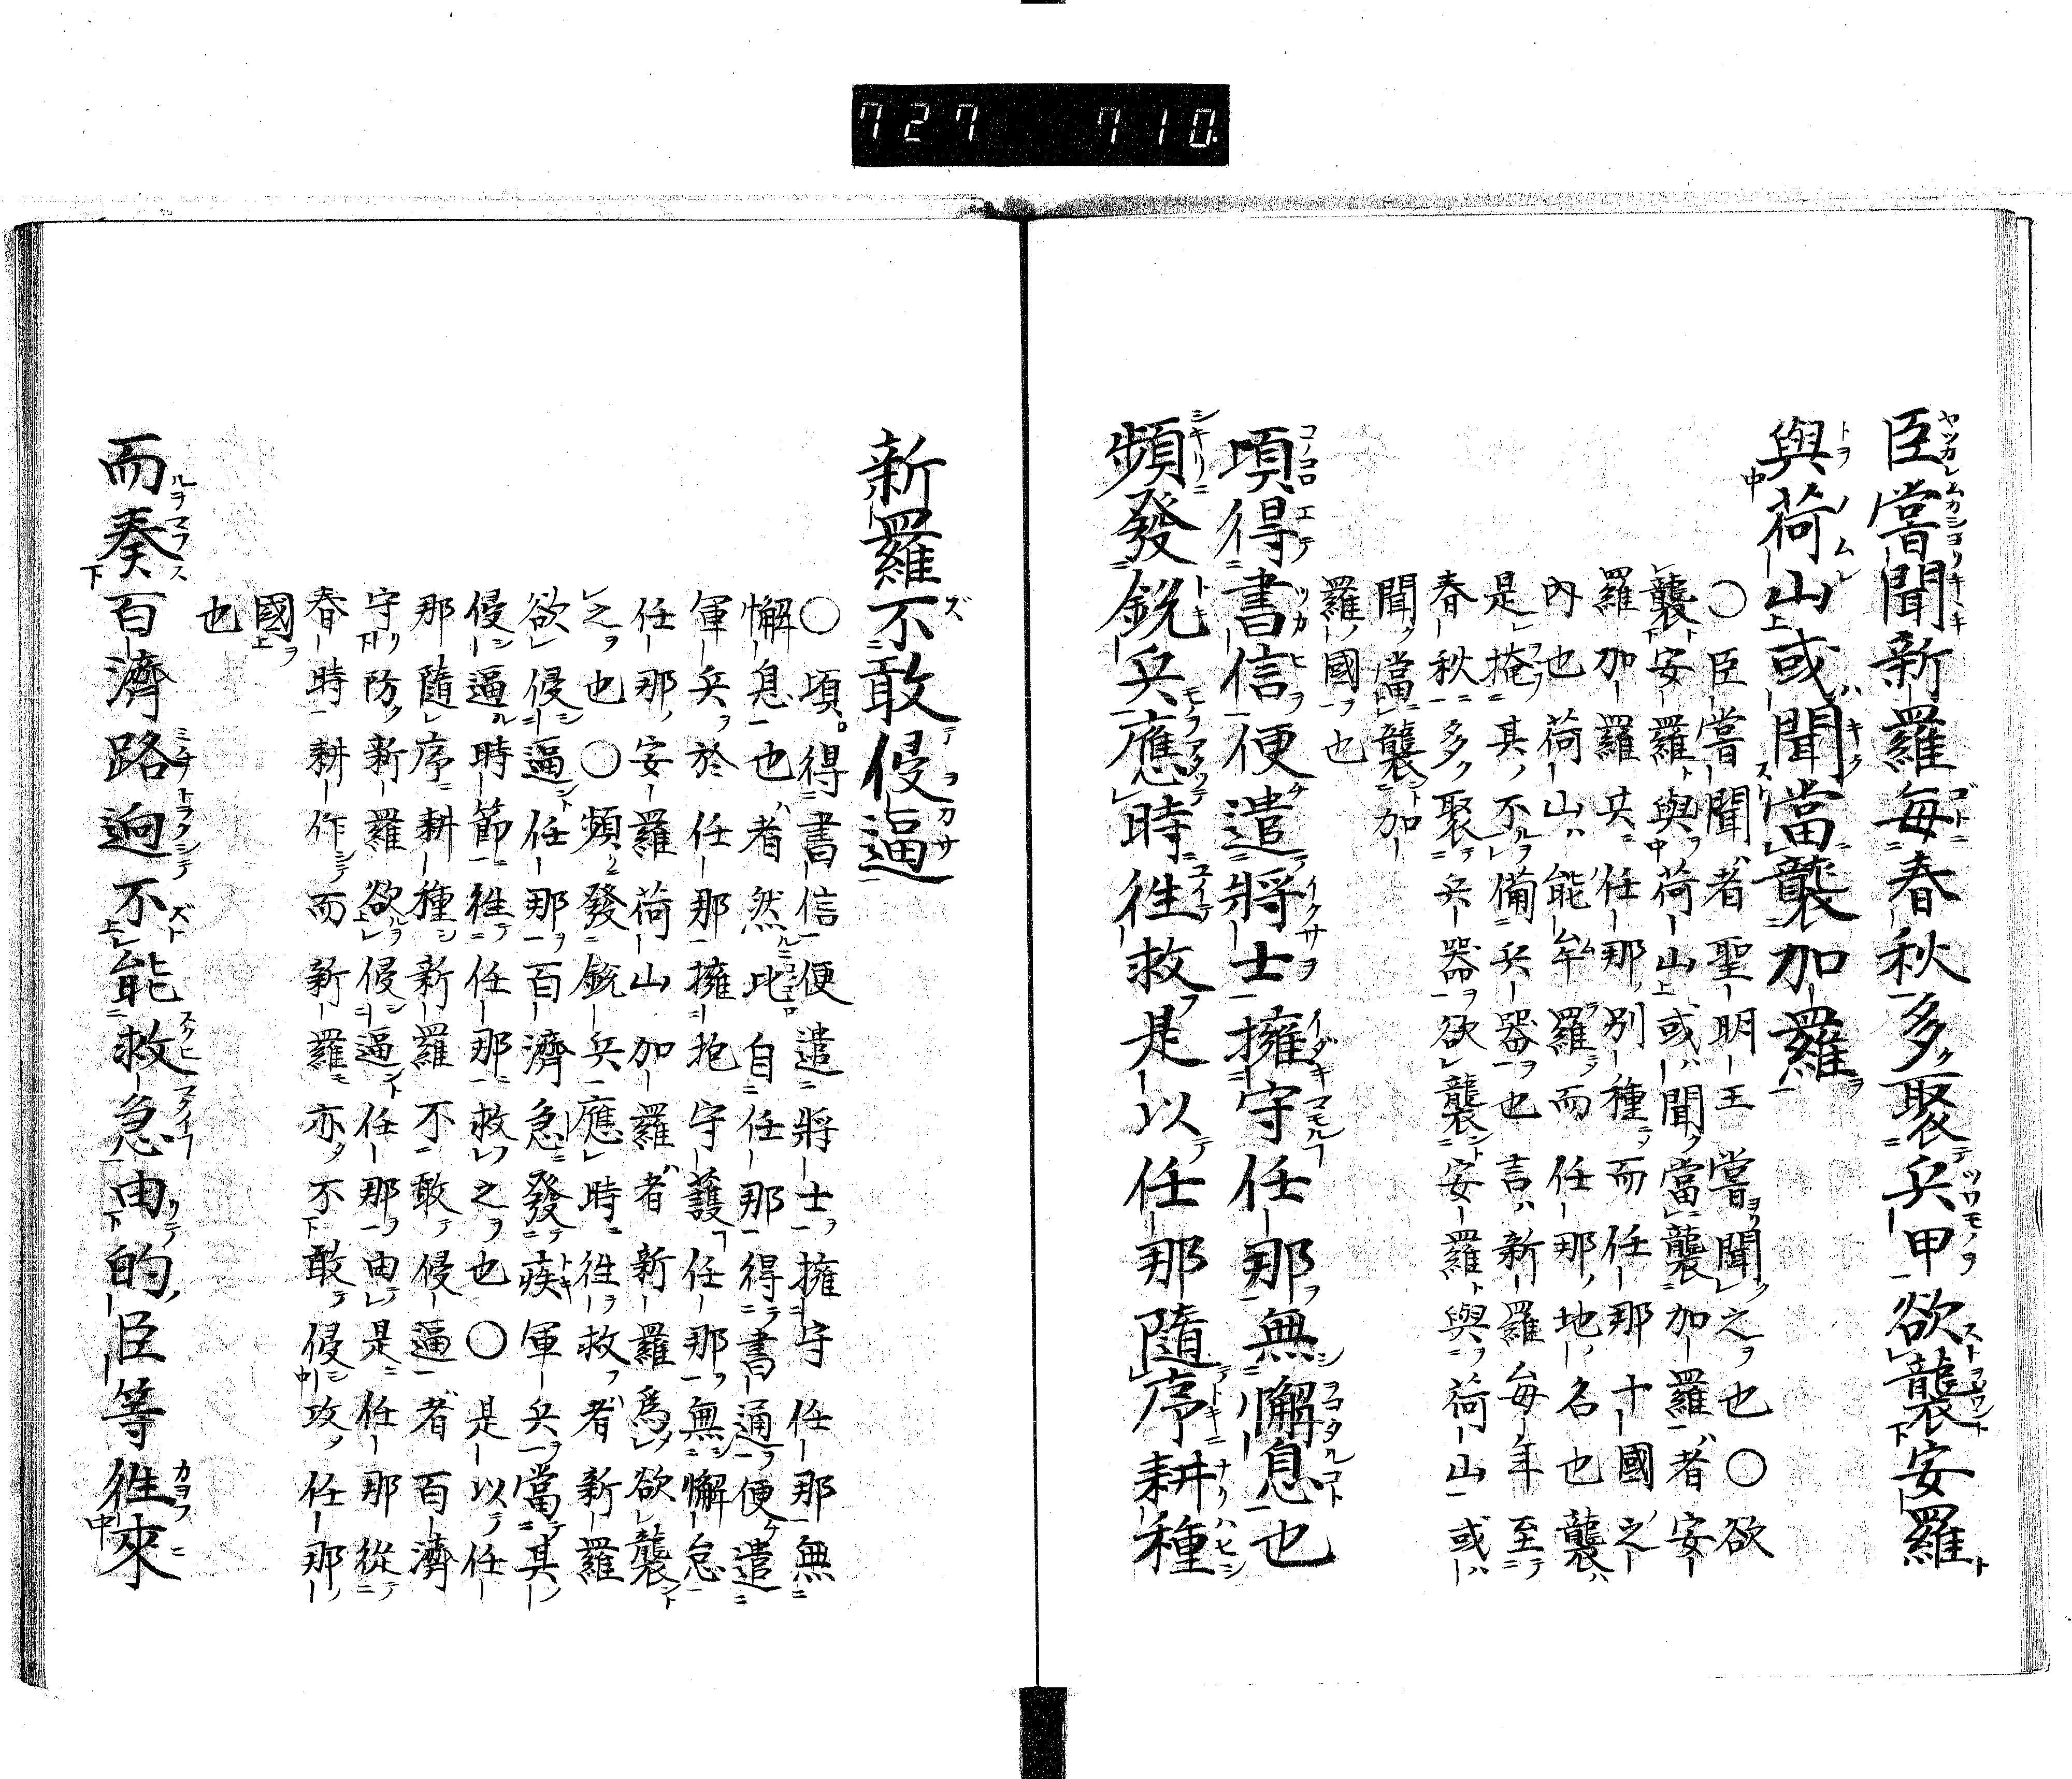 727 710
臣嘗聞新羅每春秋多聚兵甲欲襲安羅
與荷山或聞當襲加羅
○臣嘗聞者聖明王嘗聞之也○欲
襲安羅與荷山或聞當襲加羅者安
羅加羅共任那別種而任那十國之
內也荷山能牟羅而任那地名也襲
是掩其不備兵器也言新羅每年至
春秋多聚兵器欲襲安羅與荷山或
聞當襲加
羅國也
頃得書信便遣將士擁守任那無懈息也
頻發銳兵應時往救是以任那隨序耕種
新羅不敢侵逼
○頃得書信便遣將士擁守任那無
懈息也者然此自任那得書通便遣
軍兵於任那擁抱守護任那無懈怠
任那安羅荷山加羅者新羅爲欲襲
之也○頻發銳兵應時往救者新羅
欲侵逼任那百濟急發疾軍兵當其
侵逼時節往任那救之也○是以任
那隨序耕種新羅不敢侵逼者百濟
守防新羅欲侵逼任那由是任那從
春時耕作而新羅亦不敢侵攻任那
國
也
而奏百濟路迥不能救急由的臣等往來